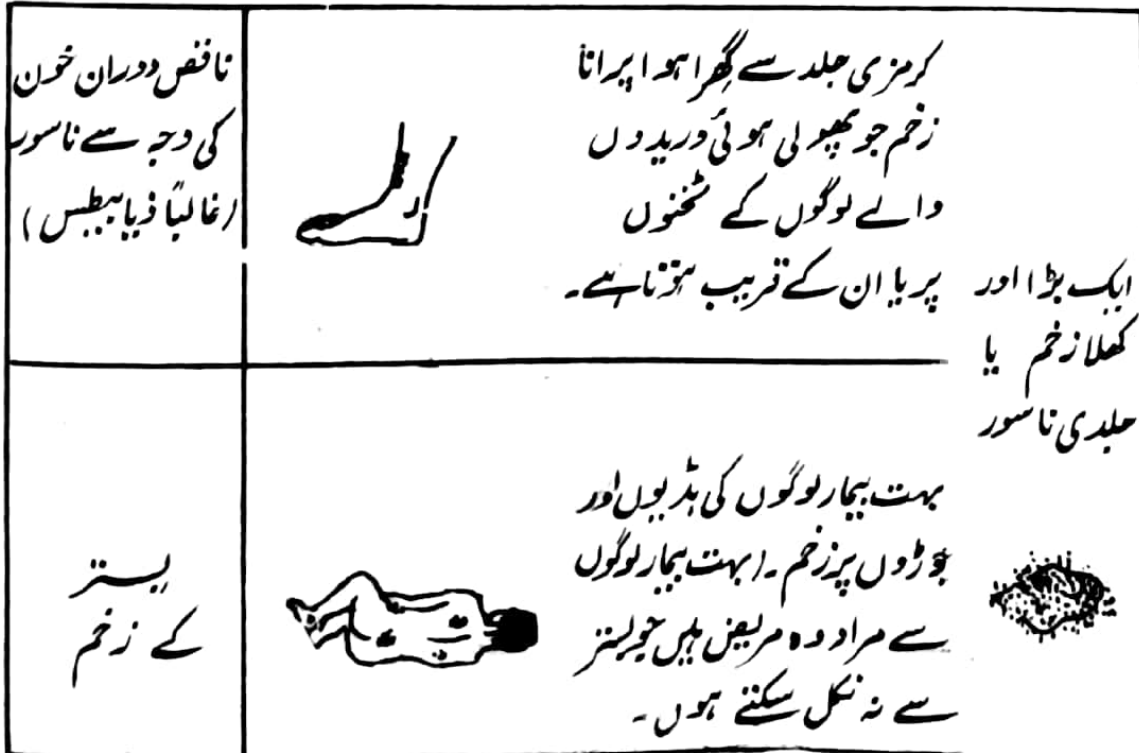 ایک بڑا اور
کھلا زخم یا
جلدی ناسور
کرمزی جلد سے گھرا ہوا پرانا
زخم جو پھولی ہوئی وریدوں
والے لوگوں کے ٹخنوں
پر یا ان کے قریب ہوتا ہے۔
ناقص دوران خون
کی وجہ سے ناسور
(غالباً ذیابیطس)
بہت بیمار لوگوں کی ہڈیوں اور
جوڑوں پر زخم۔ (بہت بیمار لوگوں
سے مراد وہ مریض ہیں جو بستر
سے نہ نکل سکتے ہوں۔
بستر
کے زخم